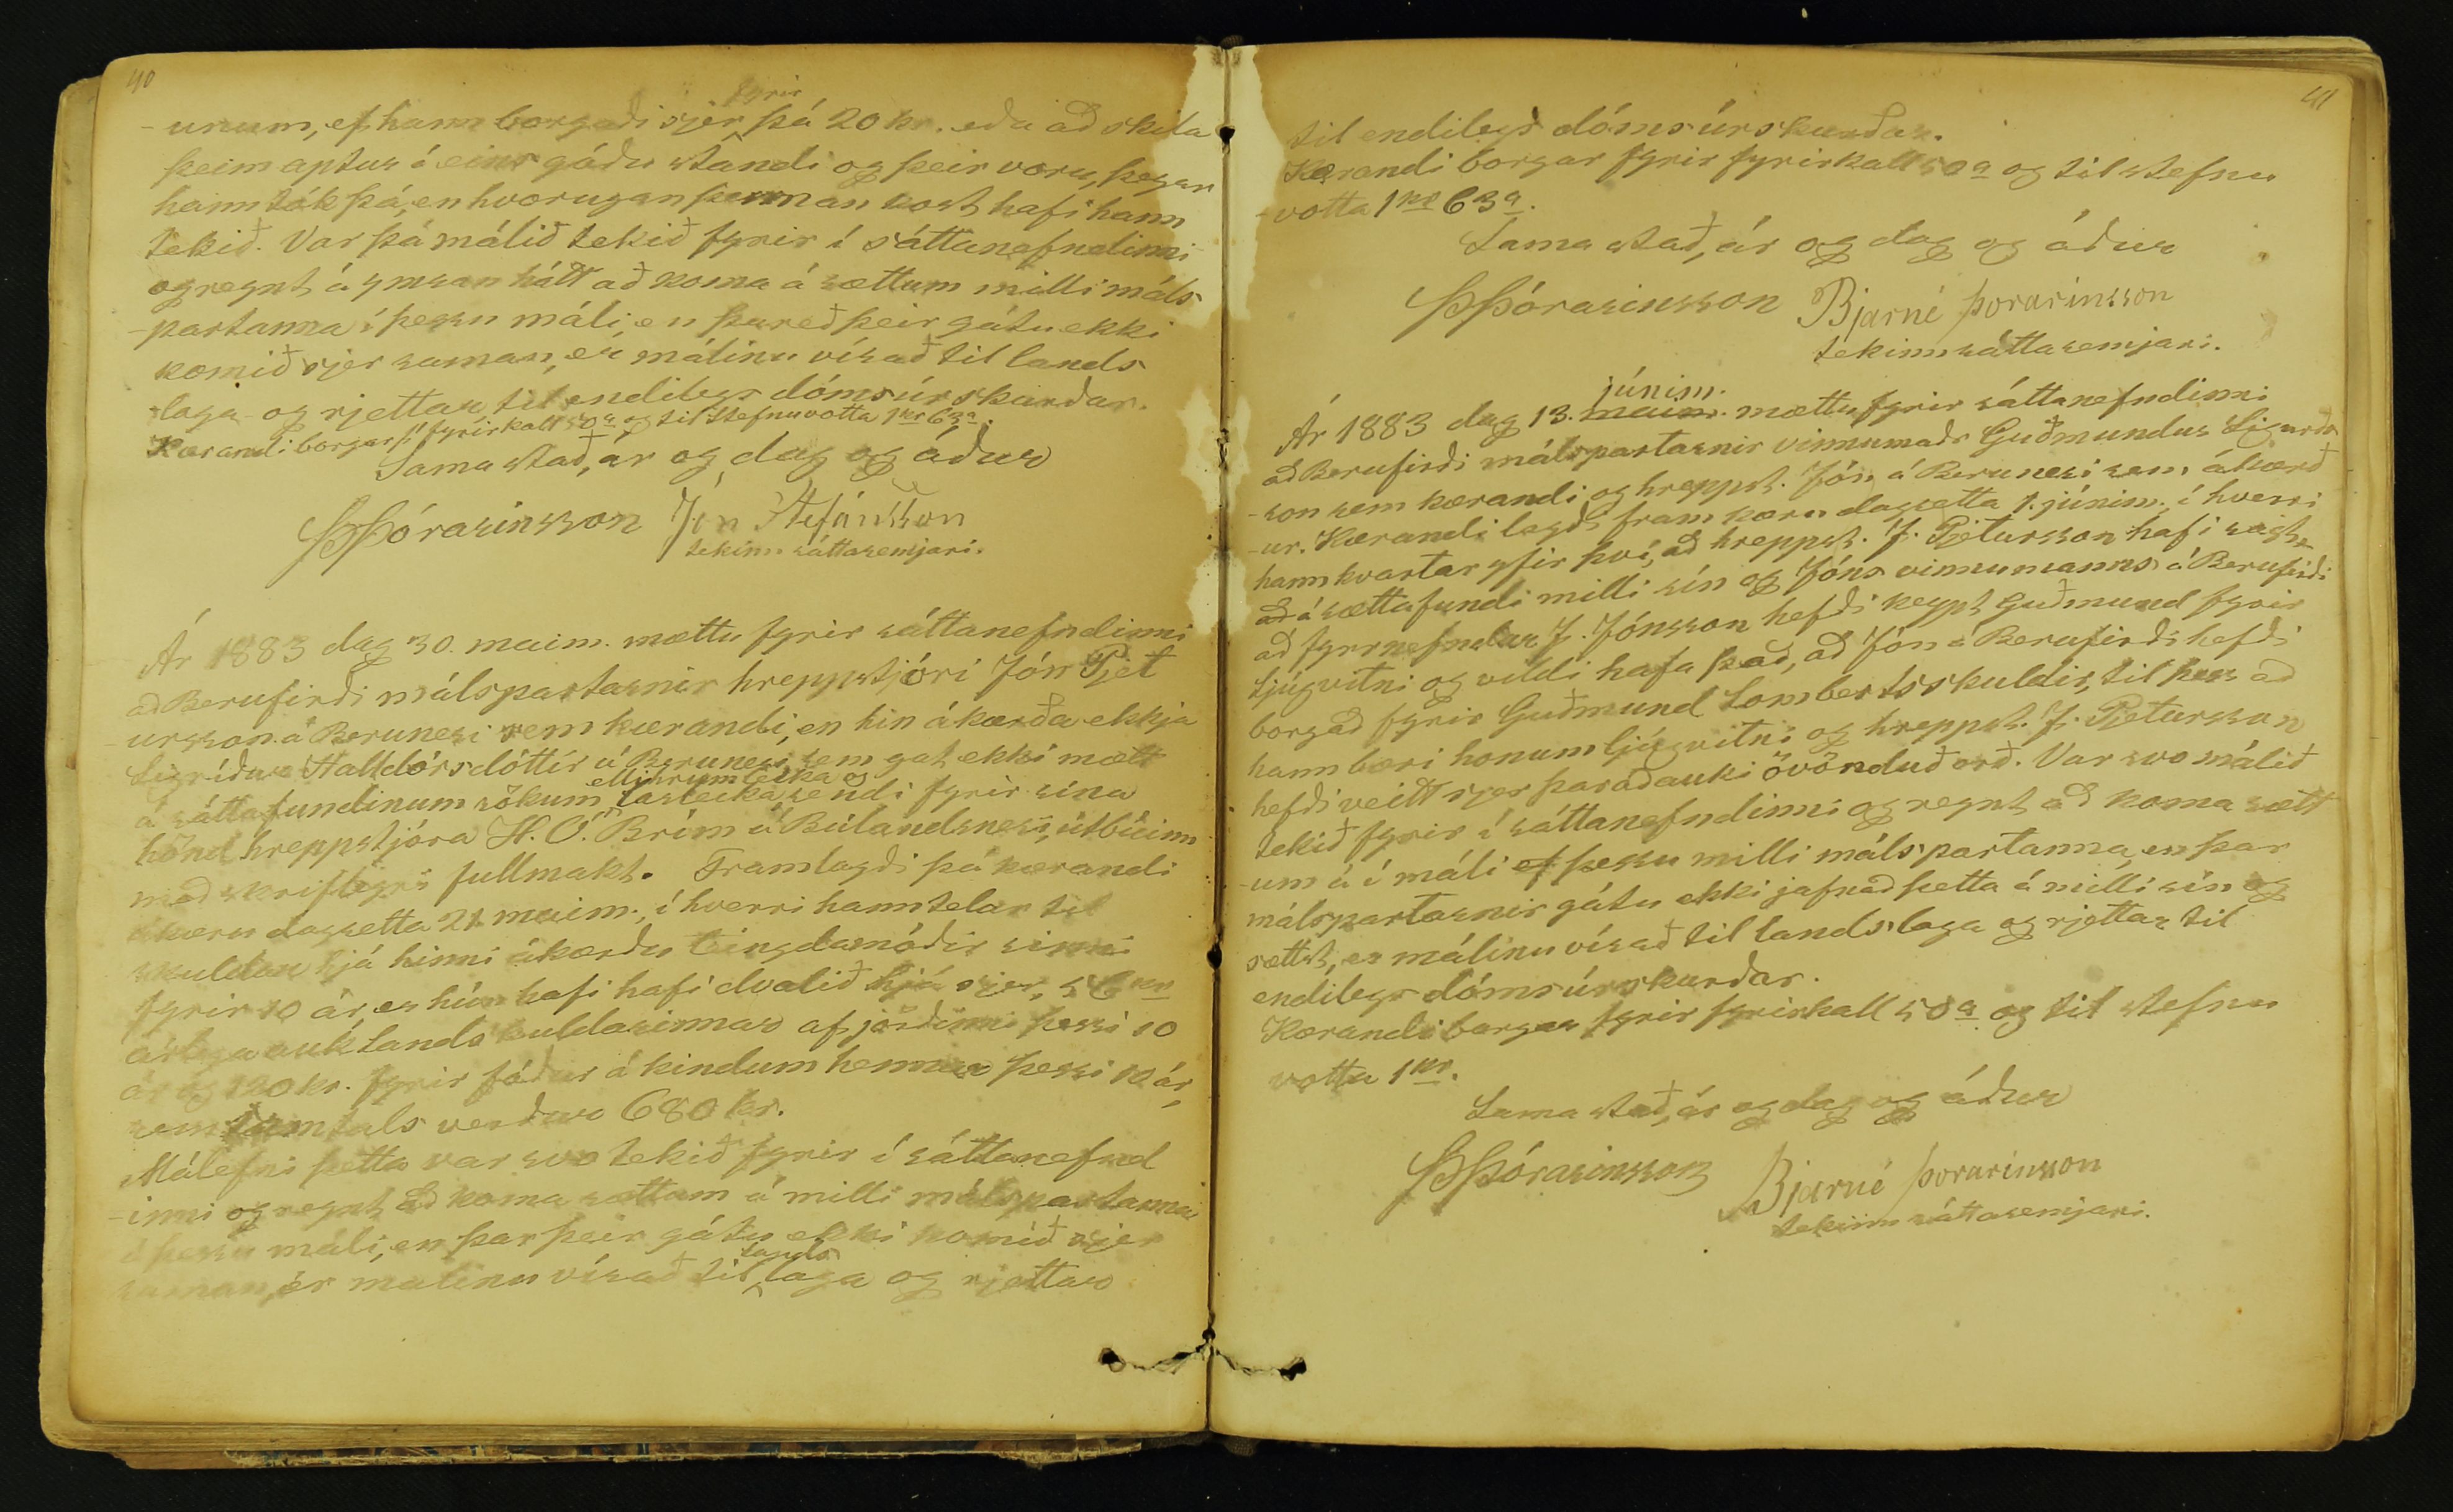 40
-unum, ef hann borgaði sjer fyrir þá 20 kr. eða að skila
þeim aptur í eins góðu standi og þeir voru, þegar
hann tók þá, en hvorugan þennan kost hafi hann
tekið. Var þá málið tekið fyrir í sáttanefndinni
og reynt á ymsan hátt að koma á sættum milli máls
-partanna í þessu máli, en þareð þeir gátu ekki
komið sjer saman, er málinu vísað til lands
laga og rjettar til endilegs dómsúrskurðar.
Kærandi borgar f. fyrirkall 50 a og til stefnuvotta 1 kr 63 a.
Sama stað, ár og dag og áður
ÞÞórarinsson Jón Stefánsson
tekinn sáttasemjari.
Ár 1883 dag 30. maim. mættu fyrir sáttanefndinni
að Berufirði málspartarnir hreppstjóri Jón Pjet
-ursson á Berunesi sem kærandi, en hin ákærða ekkja
Sigríður Halldórsdóttir á Berunesi sem gat ekki mætt
á sáttafundinum sökum ellihrumleika og lasleika sendi fyrir sína
hönd hreppstjóra H. Ó. Brím á Búlandsnesi, útbúinn
með skriflegri fullmakt. Framlagði þá kærandi
kæru dagsetta 21. maim., í hverri hann telar til
skuldar hjá hinni ákærðu tengdamóðir sinni
fyrir 10 ár, er hún hafi hafi dvalið hjá sjer, 56 kr
árlega auk landskuldarinnar af jörðinni þessi 10
ár og 120 kr. fyrir fóður á kindum hennar þessi 10 ár,
sem samtals verður 680 kr.
Málefni þetta var svo tekið fyrir í sáttanefnd
-inni og reynt að koma sættum á milli málspartanna
í þessu máli, en þar þeir gátu ekki komið sjer
saman, er málinu vísað til lands laga og rjettar
41
til endilegs dómsúrskurðar.
Kærandi borgar fyrir fyrirkall 50 a og til stefnu
-votta 1 kr 63 a.
Sama stað, ár og dag og áður
ÞÞórarinsson Bjarni Þorarinsson
tekinn sáttasemjari.
Ár 1883 dag 13. júnim. mættu fyrir sáttanefndinni
að Berufirði málspartarnir vinnumaðr Guðmundur Sigurðs
-son sem kærandi og hreppst. Jón á Berunesi sem ákærð
-ur. Kærandi lagði fram kæru dagsetta 1. júnim., í hverri
hann kvartar yfir því, að hreppst. J. Pjetursson hafi sagt
að á sættafundi milli sín og Jóns vinnumanns á Berufirði
að fyrrnefndur J. Jónsson hefði keypt Guðmund fyrir
ljúgvitni og vildi hafa það, að Jón á Berufirði hefði
borgað fyrir Guðmund Lombertsskuldir, til þess að
hann bæri honum ljúgvitni og hreppst. J. Pjetursson
hefði veitt sjer þaraðauki óvönduð orð. Var svo málið
tekið fyrir í sáttanefndinni og reynt að koma sætt
-um á í máli þessu milli málspartanna, en þar
málspartarnir gátu ekki jafnað þetta á milli sín og
sættst, er málinu vísað til landslaga og rjettar til
endilegs dómsúrskurðar.
Kærandi borgar fyrir fyrirkall 50 a og til stefnu
votta 1 kr.
Sama stað, ár og dag og áður
ÞÞórarinsson Bjarni Þorarinsson
tekinn sáttasemjari.